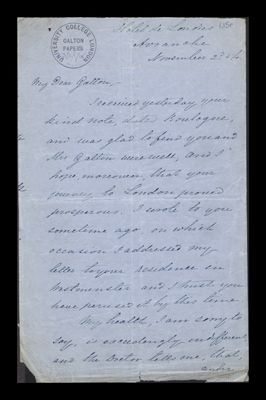 UNIVERSITY COLLEGE LONDON
GALTON
PAPERS
Hotel de Londres
Avranche
November 2d
My Dear Galton,-
I received yesterday your
kind note dated Boulogne,
and was glad to find you and
Mrs Galton were well, and I
hope, moreover, that your
journey to London proved
prosperous. I wrote to you
sometime ago, on which
occasion I addressed my
letter to your residence in
Westminster and I trust you
have perused it by this time.
My health, I am sorry to
say, is exceedingly indifferent
and the Doctor tells me, that,